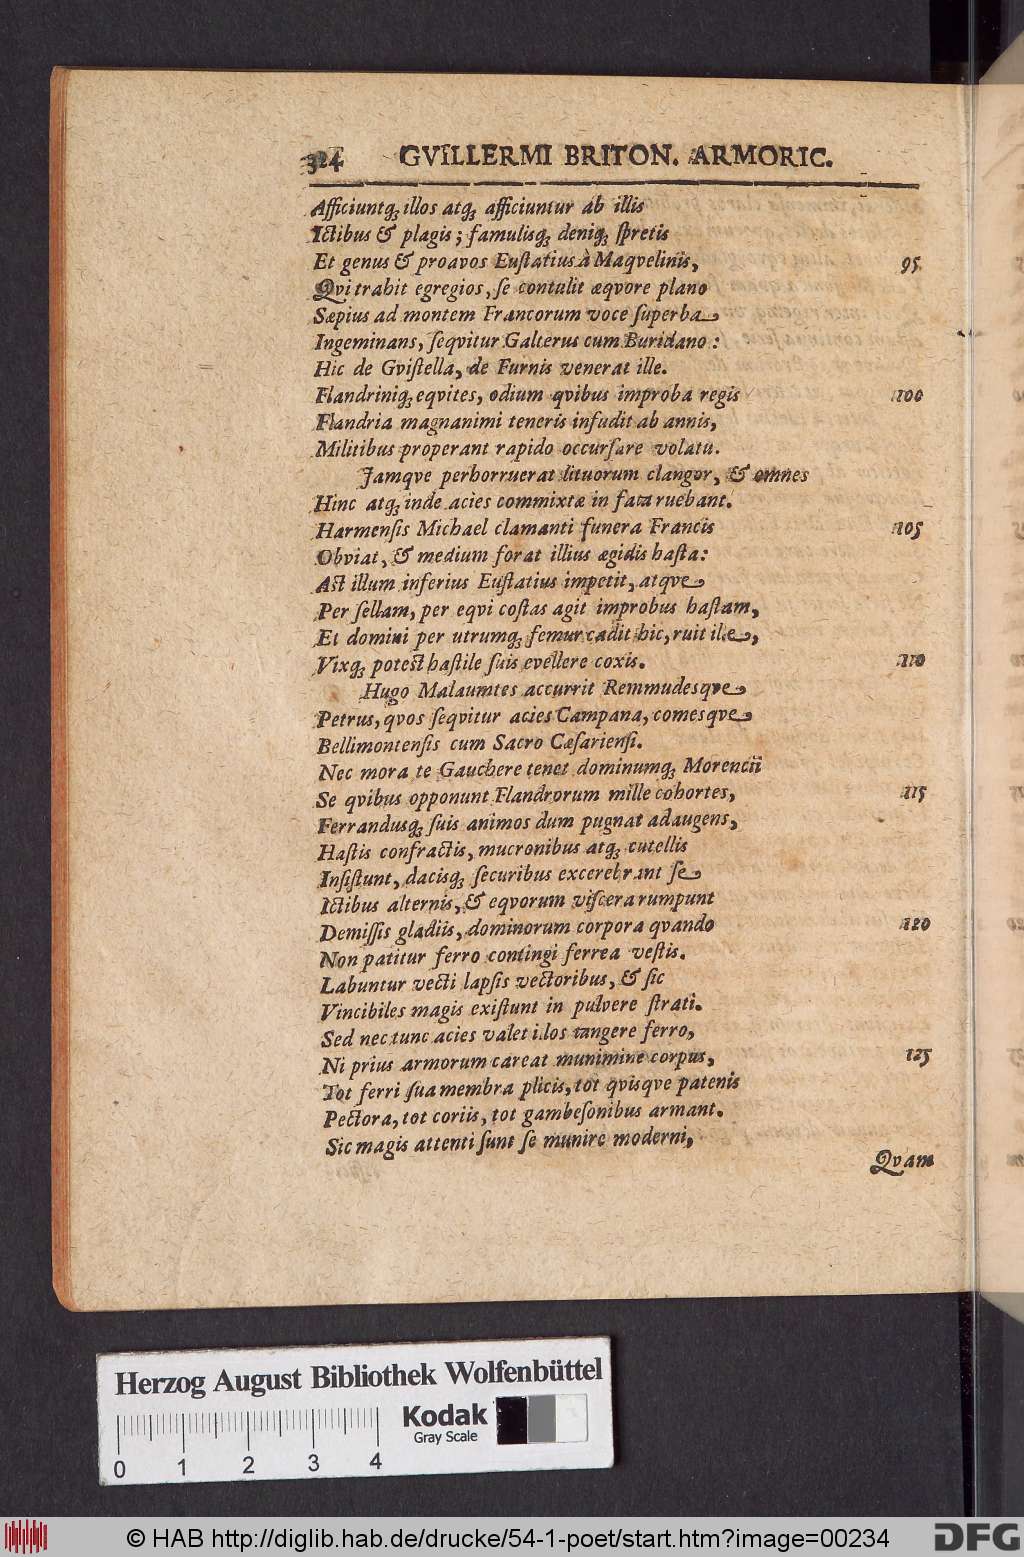 324 GVILLERMI BRITON. ARMORIC.
Afficiuntq; illos atq; afficiuntur ab illis
Ictibus & plagis; famulisq; deniq; ſpretis
Et genus & proavos Euſtatius à Maqvelinîs, 95
Qvi trahit egregios, ſe contulit æqvore plano
Sæpius ad montem Francorum voce ſuperba
Ingeminans, ſeqvitur Galterus cum Buridano:
Hic de Gviſtella, de Furnis venerat ille.
Flandriniq; eqvites, odium qvibus improba regis 100
Flandria magnanimi teneris infudit ab annis,
Militibus properant rapido occurſare volatu.
Jamqve perhorruerat lituorum clangor, & omnes
Hinc atq; inde acies commixtæ in fata ruebant.
Harmenſis Michael clamanti funera Francis 105
Obviat, & medium forat illius ægidis haſta:
Aſt illum inferius Euſtatius impetit, atqve
Per ſellam, per eqvi coſtas agit improbus haſtam,
Et domini per utrumq; femur cadit hic, ruit ille,
Vixq; poteſt haſtile ſuis evellere coxis. 110
Hugo Malaumtes accurrit Remmudesqve
Petrus, qvos ſeqvitur acies Campana, comesqve
Bellimontenſis cum Sacro Cæſarienſi.
Nec mora te Gauchere tenet dominumq; Morencii
Se qvibus opponunt Flandrorum mille cohortes, 115
Ferrandusq; ſuis animos dum pugnat adaugens,
Haſtis confractis, mucronibus atq; cutellis
Inſiſtunt, dacisq; ſecuribus excerebrant ſe
Ictibus alternis, & eqvorum viſcera rumpunt
Demiſſis gladiis, dominorum corpora qvando 120
Non patitur ferro contingi ferrea veſtis.
Labuntur vecti lapſis vectoribus, & ſic
Vincibiles magis exiſtunt in pulvere ſtrati.
Sed nec tunc acies valet illos tangere ferro,
Ni prius armorum careat munimine corpus, 125
Tot ferri ſua membra plicis, tot qvisqve patenis
Pectora, tot coriis, tot gambeſonibus armant.
Sic magis attenti ſunt ſe munire moderni,
Qvam
Herzog August Bibliothek Wolfenbüttel
Kodak
Gray Scale
0 1 2 3 4
© HAB http://diglib.hab.de/drucke/54-1-poet/start.htm?image=00234
DFG